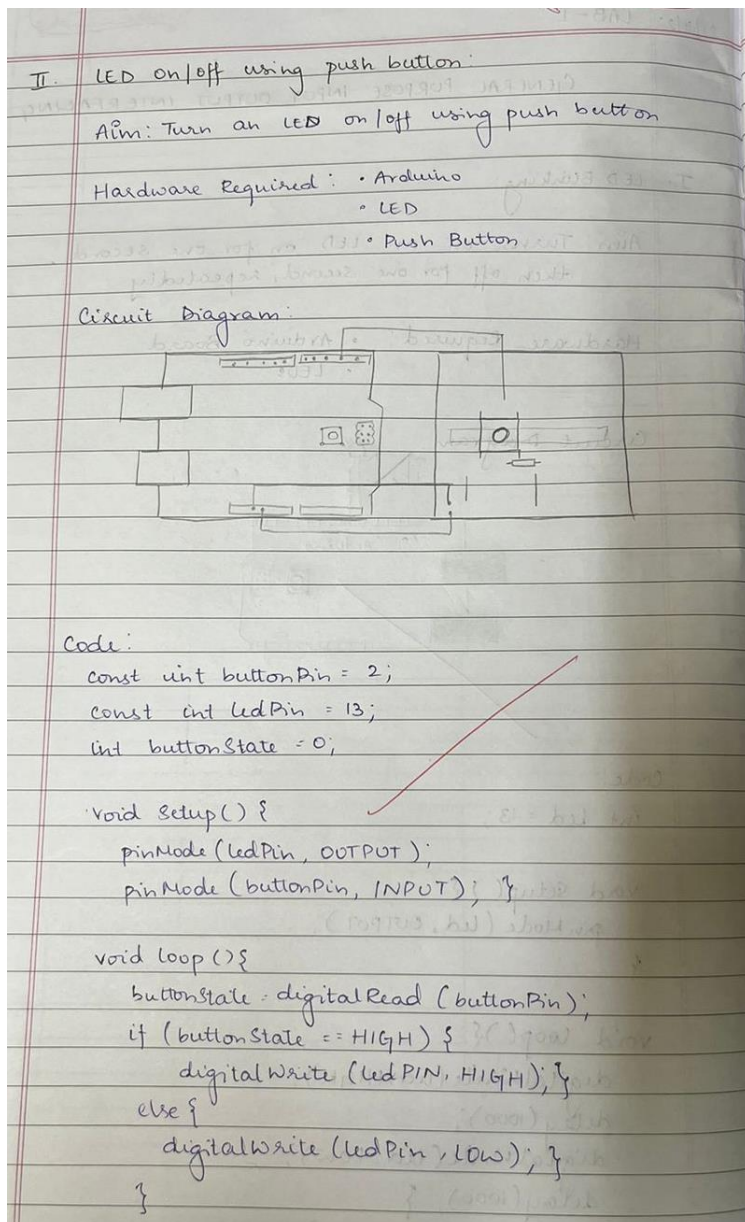 II. LED on/off using push button:
Aim: Turn an LED on/off using push button
Hardware Required: • Arduino
• LED
• Push Button
Circuit Diagram:
Code:
const uint buttonPin = 2;
const int ledPin = 13;
int buttonState = 0;
void setup() {
pinMode (ledPin, OUTPUT);
pinMode (buttonPin, INPUT); }
void loop () {
buttonState = digitalRead (buttonPin);
if (buttonState == HIGH) {
digitalWrite (ledPIN, HIGH); }
else {
digitalWrite (ledPin, LOW); }
}